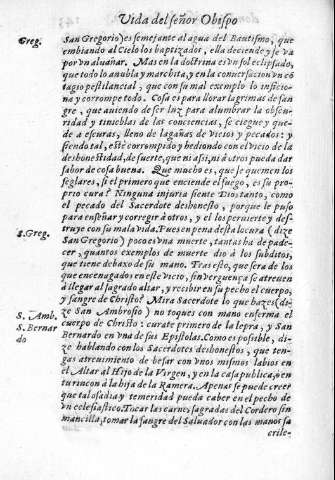 Vida del señor Obispo
Greg.
San Gregorio) es semejante al agua del Bautismo, que
embiando al Cielo los baptizados, ella deciende y se va
por vn aluañar. Mas en la doctrina es vn sol eclipsado,
que todo lo anubla y marchita, y en la conuersacion vn cõ
tagio pestilancial, que con su mal exemplo lo inficio-
na y corrompe todo. Cosa es para llorar lagrimas de san
gre, que auiendo de ser luz para alumbrar la obscu-
ridad y tinieblas de las conciencias, se ciegue y que-
de a escuras, lleno de lagañas de vicios y pecados: y
siendo tal, estè corrompido y hediondo con el vicio de la
deshonestidad, de suerte, que ni a si, ni à otros pueda dar
sabor de cosa buena. Que mucho es, que se quemen los
seglares, si el primero que enciende el fuego, es su pro
prio cura? Ninguna injuria siente Dios tanto, como
el pecado del Sacerdote deshonesto, porque le puso
para enseñar y corregir à otros, y el los peruierte y des-
truye con su mala vida. Pues en pena desta locura (dize
S. Greg.
San Gregorio) poco es vna muerte, tantas ha de pade-
cer, quantos exemplos de muerte dio à los subditos,
que tiene debaxo de su mano. Tras esto, que sera de los
que encenagados en este vicio, sin verguença se atreuen
à llegar al sagrado altar, y recibir en su pecho el cuerpo,
y sangre de Christo? Mira Sacerdote lo que hazes (di-
S. Amb.
ze San Ambrosio) no toques con mano enferma el
S. Bernar
cuerpo de Christo: curate primero de la lepra, y San
do
Bernardo en vna de sus Epistolas. Como es posible, di-
ze hablando con los Sacerdotes deshonestos, que ten-
gas atreuimiento de besar con vnos mismos labios en
el Altar al Hijo de la Virgen, y en la casa publica, ò en
tu rincon à la hija de la Ramera. Apenas se puede creer
que tal osadia y temeridad pueda caber en el pecho de
vn eclesiastico. Tocar las carnes sagradas del Cordero sin
mancilla, tomar la sangre del Saluador con las manos sa
crile-